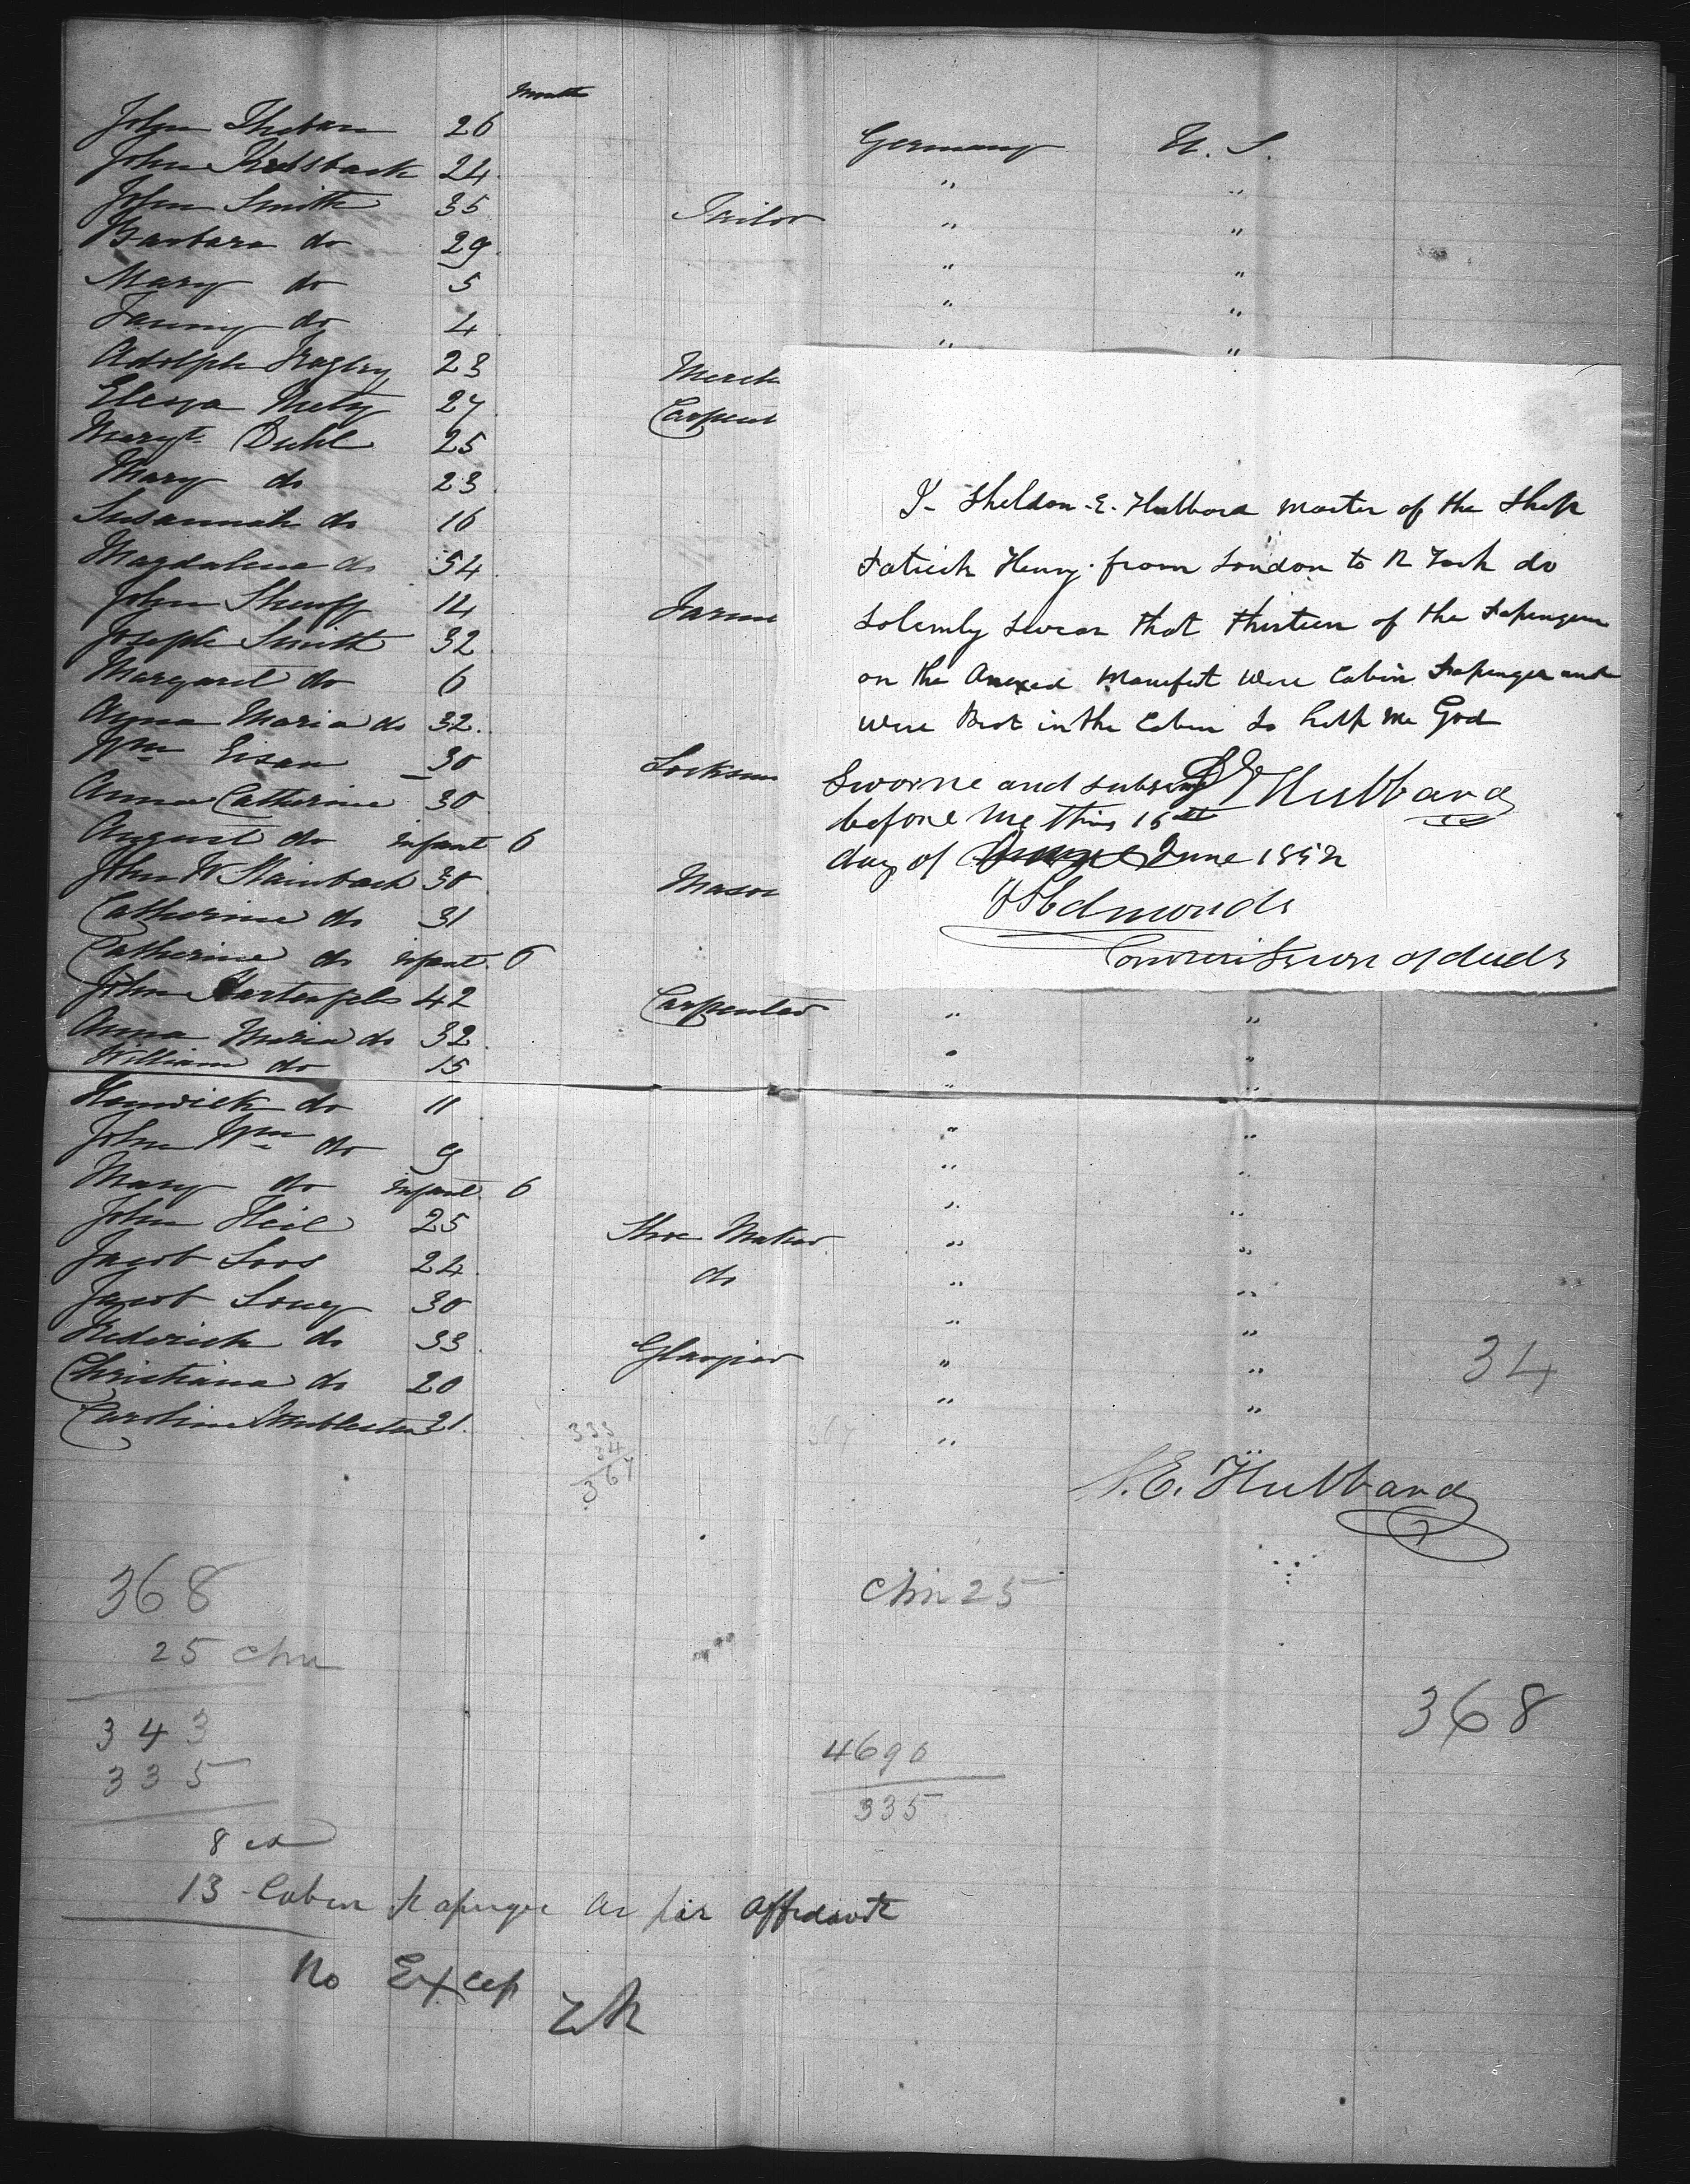 Months
John Theban 26 Germany U. S.
John Krebsbach 24 " "
John Smith 35 Tailor " "
Barbara do 29 " "
Mary do 5 " "
Fanny do 4 " "
Adolph 23 Merch
Metz 27 Carpent
Margt Duhl 25
Mary do 23
Susannah do 16
Magdalena do 54
John 14 Farm
Joseph Smith 32
Margaret do 6
Anna Maria do 32.
Wm Eisan 30 Locksm
Anna Catherine 30
August do infant 6
John W Stainbach 30 Mason
Catherine do 31
Catherine do infant. 6
I Sheldon. E. Hubbard master of the Ship
Patrick Henry from London to N York do
Solemly Swear that thirteen of the Passengers
on the Anexed Manefest were Cabin Passenger and
were in the Cabin So help me God
Sworne and subscrib S E Hubbard
before me this 15th
day of June 1852
Edmonds
Commissioner of deeds
John Hartenfels 42 Carpenter " "
Anna Maria do 32 " "
William do 15 " "
do 11 " "
John Wm do 9 " "
Mary do infant. 6 " "
John Heil 25 Shoe Maker " "
Jacob Loos 24 do " "
Jacob 30 " "
Frederick do 33 Glazier " " 34
Christiana do 20 " "
Caroline 21. " "
333
34
367
367
S. E. Hubbard
368
25 chn
343
335
8 ex
Chn 25
368
4690
335
13 Cabin Passenger as per Affedavit
No Excep